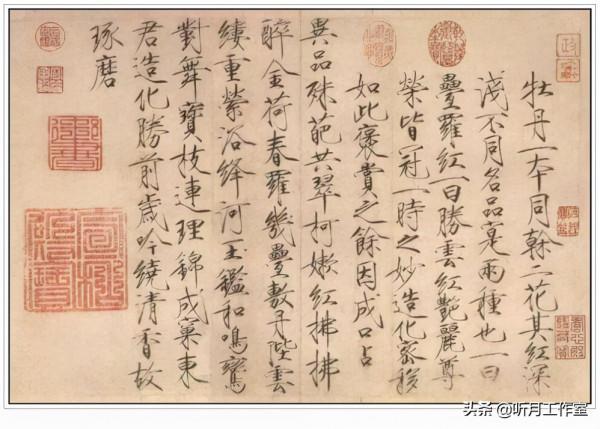 牡丹一本同榦二花其紅深
淺不同名品寔兩種也一曰
疊羅紅一曰勝雲紅艷麗尊
榮皆冠一時之妙造化密移
如此褒賞之餘因成口占
異品殊葩共翠柯嫩紅拂拂
醉金荷春羅幾疊敷丹陛雲
縷重縈浴絳河玉鑑和鳴鸞
對舞寶枝連理錦成窠東
君造化勝前歲吟繞清香故
琢磨
御書
头条 @听月工作室